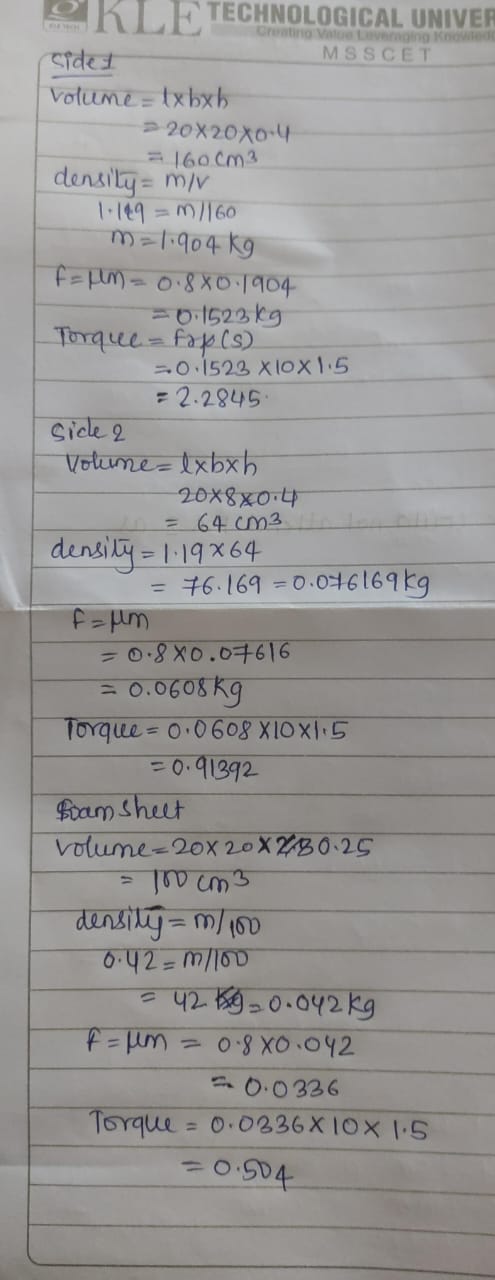 KLE TECHNOLOGICAL UNIVER
Creating Value Leveraging Knowled
MSSCET
Side 1
Volume = lxbxh
= 20x20x0.4
= 160cm3
density = m/v
1.119 = m/160
m = 1.904 Kg
f = μm = 0.8x0.1904
= 0.1523Kg
Torque =
= 0.1523 x10x1.5
= 2.2845.
Side 2
Volume = lxbxh
20x8x0.4
= 64 cm3
density = 1.19x64
= 76.169 = 0.076169kg
f = μm
= 0.8x0.07616
= 0.0608Kg
Torque = 0.0608x10x1.5
= 0.91392
foam Sheet
Volume = 20x20x 0.25
= 100 cm3
density = m/100
0.42 = m/100
= 42 = 0.042Kg
f = μm = 0.8x0.042
= 0.0336
Torque = 0.0336x10x1.5
= 0.504